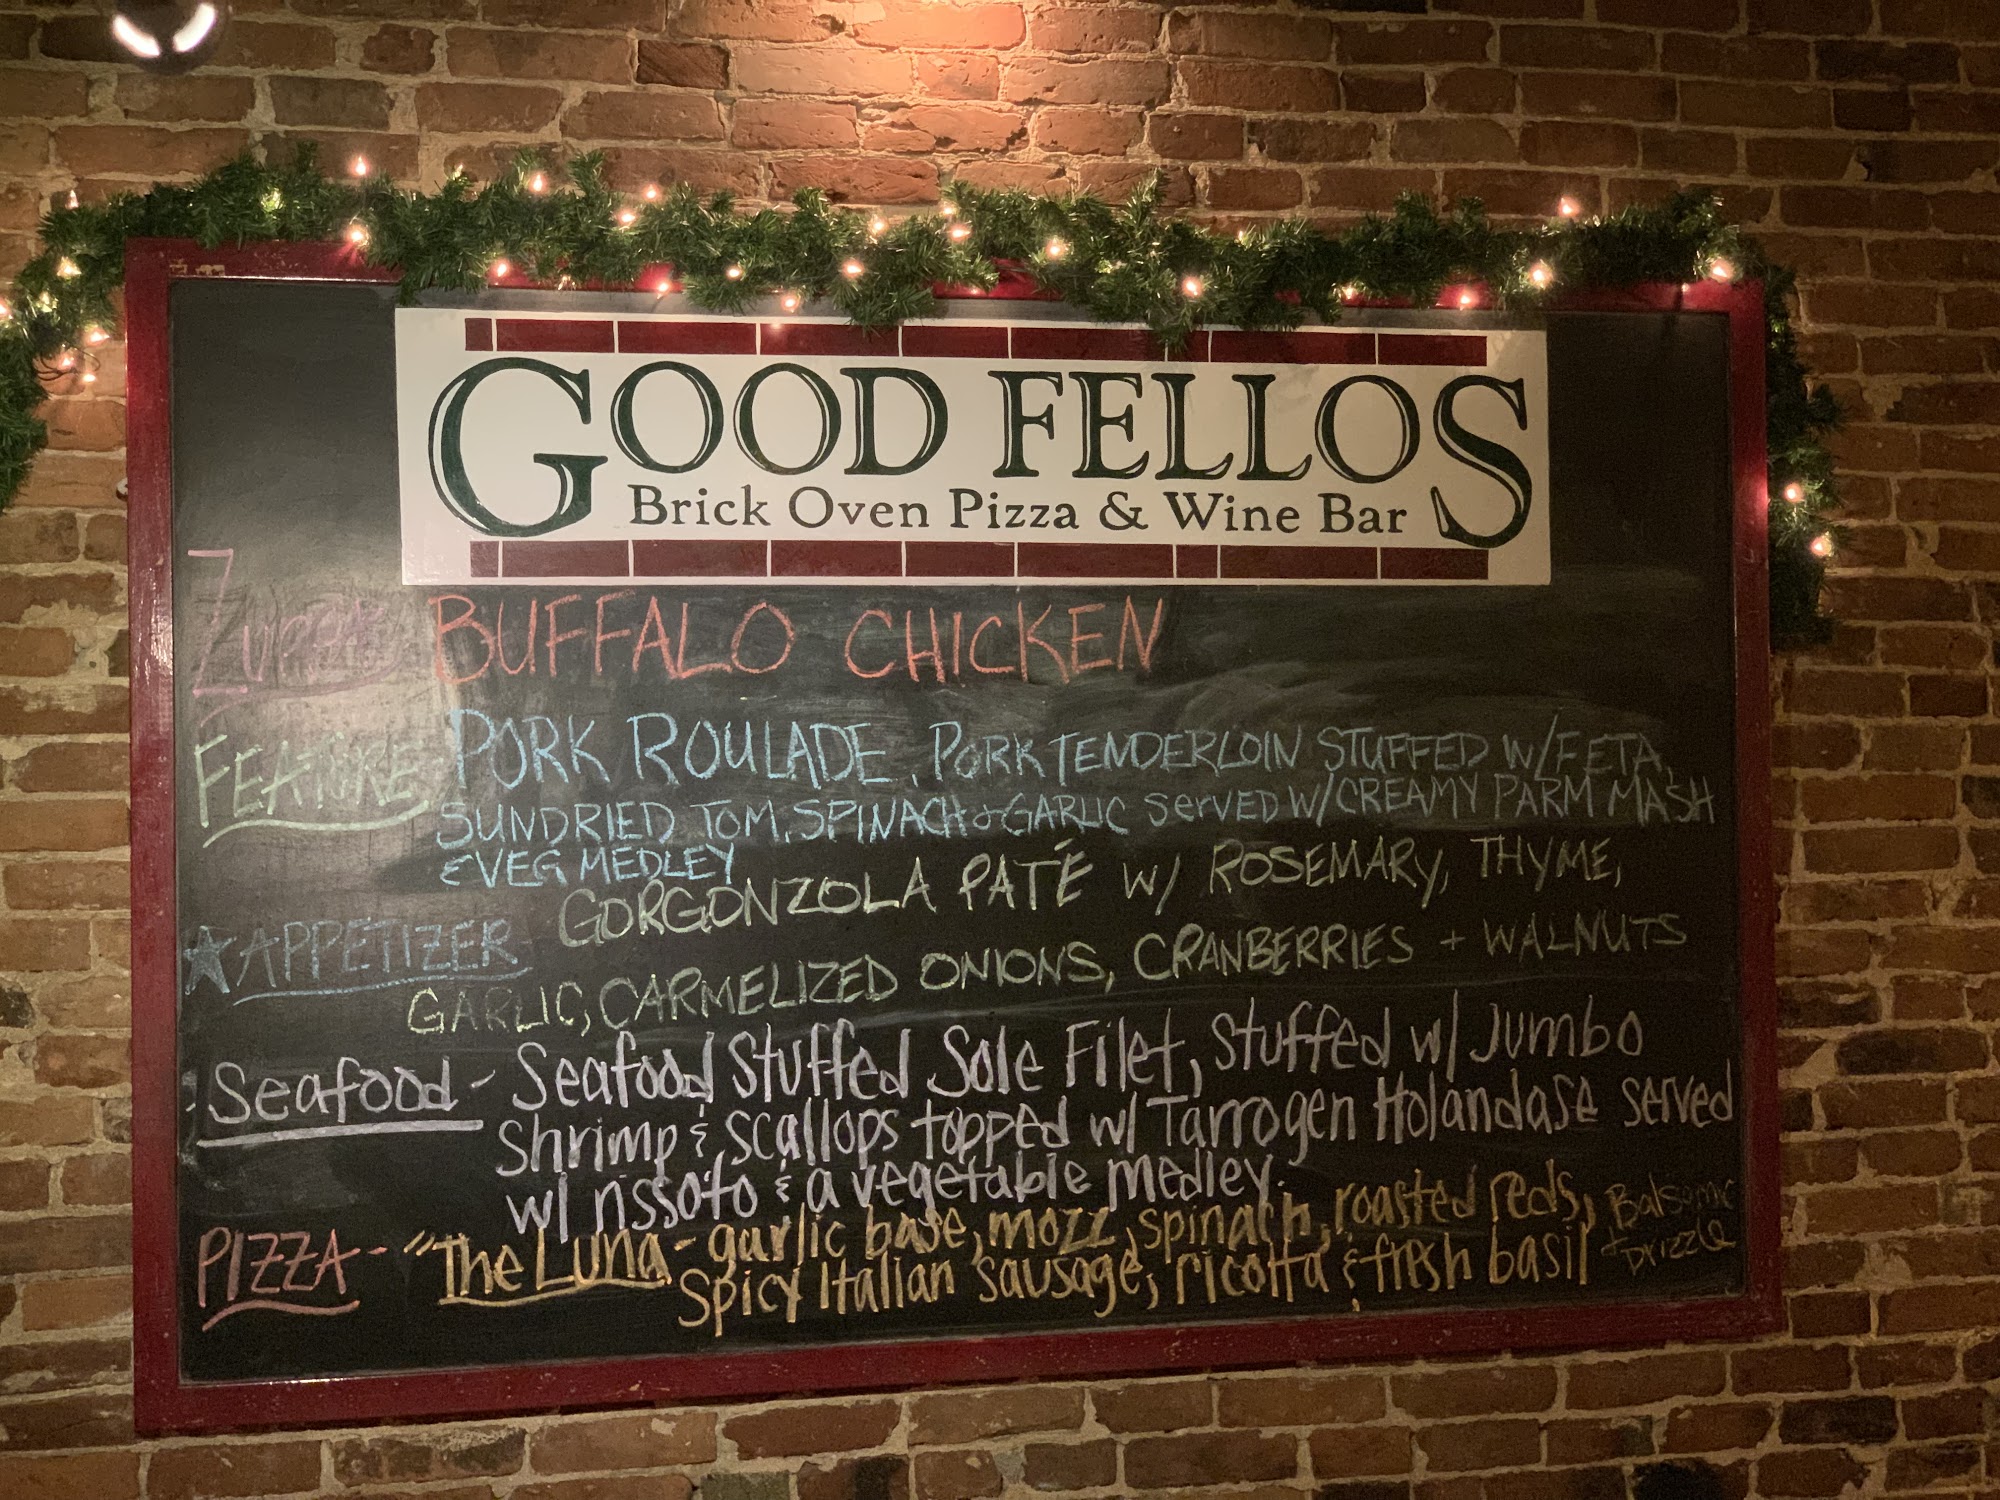 GOOD FELLOS
Brick Oven Pizza & Wine Bar
Zuppa BUFFALO CHICKEN
FEATURE- PORK ROULADE, PORK TENDERLOIN STUFFED W/FETA,
SUNDRIED TOM, SPINACH & GARLIC SERVED W/CREAMY PARM MASH
& VEG MEDLEY
★APPETIZER- GORGONZOLA PATÉ W/ ROSEMARY, THYME,
GARLIC, CARMELIZED ONIONS, CRANBERRIES + WALNUTS
Seafood - Seafood Stuffed Sole Filet, stuffed w/ Jumbo
Shrimp & scallops topped w/ Tarrogen Holandase served
w/ rissoto & a vegetable medley.
PIZZA - "The Luna - garlic base, mozz, spinach, roasted reds, Balsamic
Spicy Italian sausage, ricotta & fresh basil + Drizzle